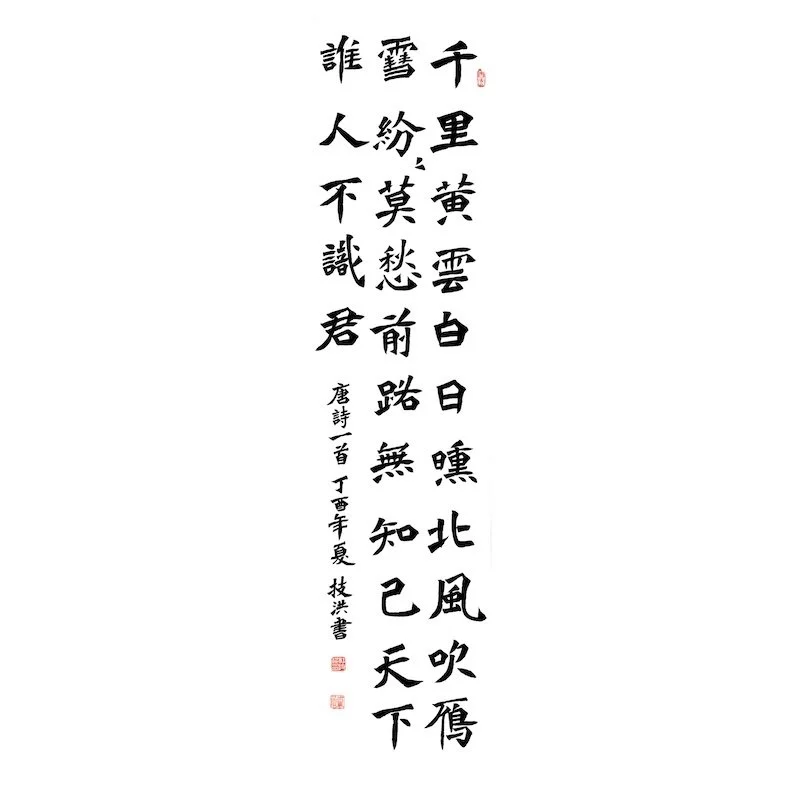 千里黄雲白日曛北風吹雁
雪紛〻莫愁前路無知己天下
誰人不識君
唐詩一首 丁酉年夏 技洪書